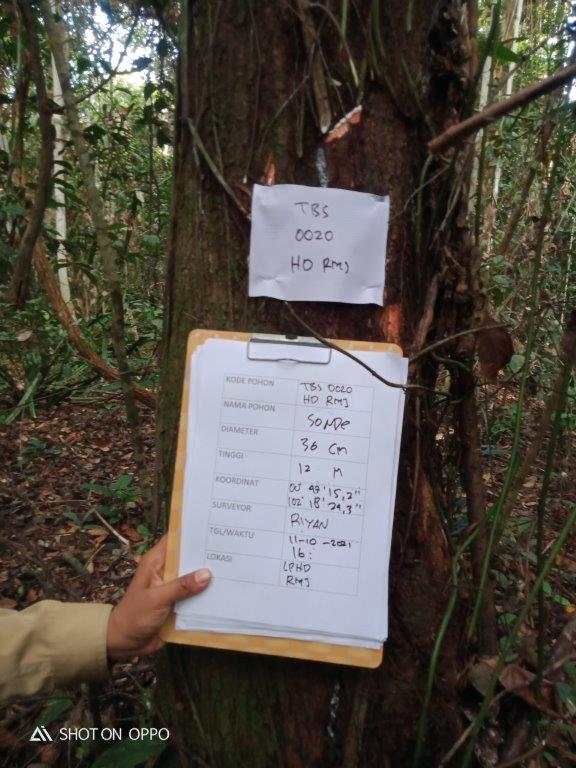 TBS
0020
HD RMJ
KODE POHON TBS 0020
HD RMJ
NAMA POHON SONDE
DIAMETER 36 CM
TINGGI 12 M
KOORDINAT 00° 49' 15,2"
102° 18' 29,3"
SURVEYOR RIYAN
TGL/WAKTU 11-10-2021
16:
LOKASI LPHD
RMJ
SHOT ON OPPO